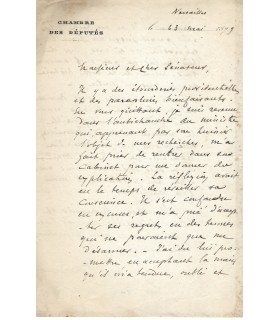 CHAMBRE
DES DÉPUTÉS
Versailles
le 23 mai 1879
Monsieur et cher Sénateur,
Il y a des étourderies providentielles
et des paravents bienfaisants.
En vous quittant j'ai
dans l'antichambre du ministre
qui, apprenant par son huissier
l'objet de mes recherches, m'a
fait prier de rentrer dans son
Cabinet pour me donner des
explications. La réflexion avait
eu le temps de réveiller sa
conscience. Il s'est confondu
en excuses et m'a prié d'accep-
ter ses regrets en des termes
qui ne pouvaient que me
désarmer. J'ai dû lui pro-
mettre en acceptant la main
qu'il m'a tendue, oubli et